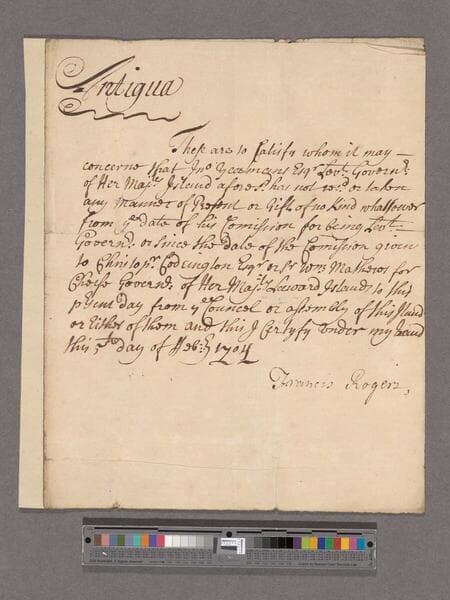 Antigua
These are to Satisfy whom it may
concerne that Jno Yeamans Esqr Levt. Governr.
of Her Majtys Island aforesd. has not recd. or taken
any Manner of Present or Gift of no Kind whatsoever
from ye date of his Comission for being Levt.
Governr. or Since the Date of the Comission given
to Christopr. Codrington Esqr or Sr Wm Mathews for
Cheife Governr. of Her Majtys Leeward Islands to this
psent day from ye Councel or assembly of this Island
or Either of them and this I Certyfy under my hand
this 5th day of Feb:ry 1704
Francis Rogers